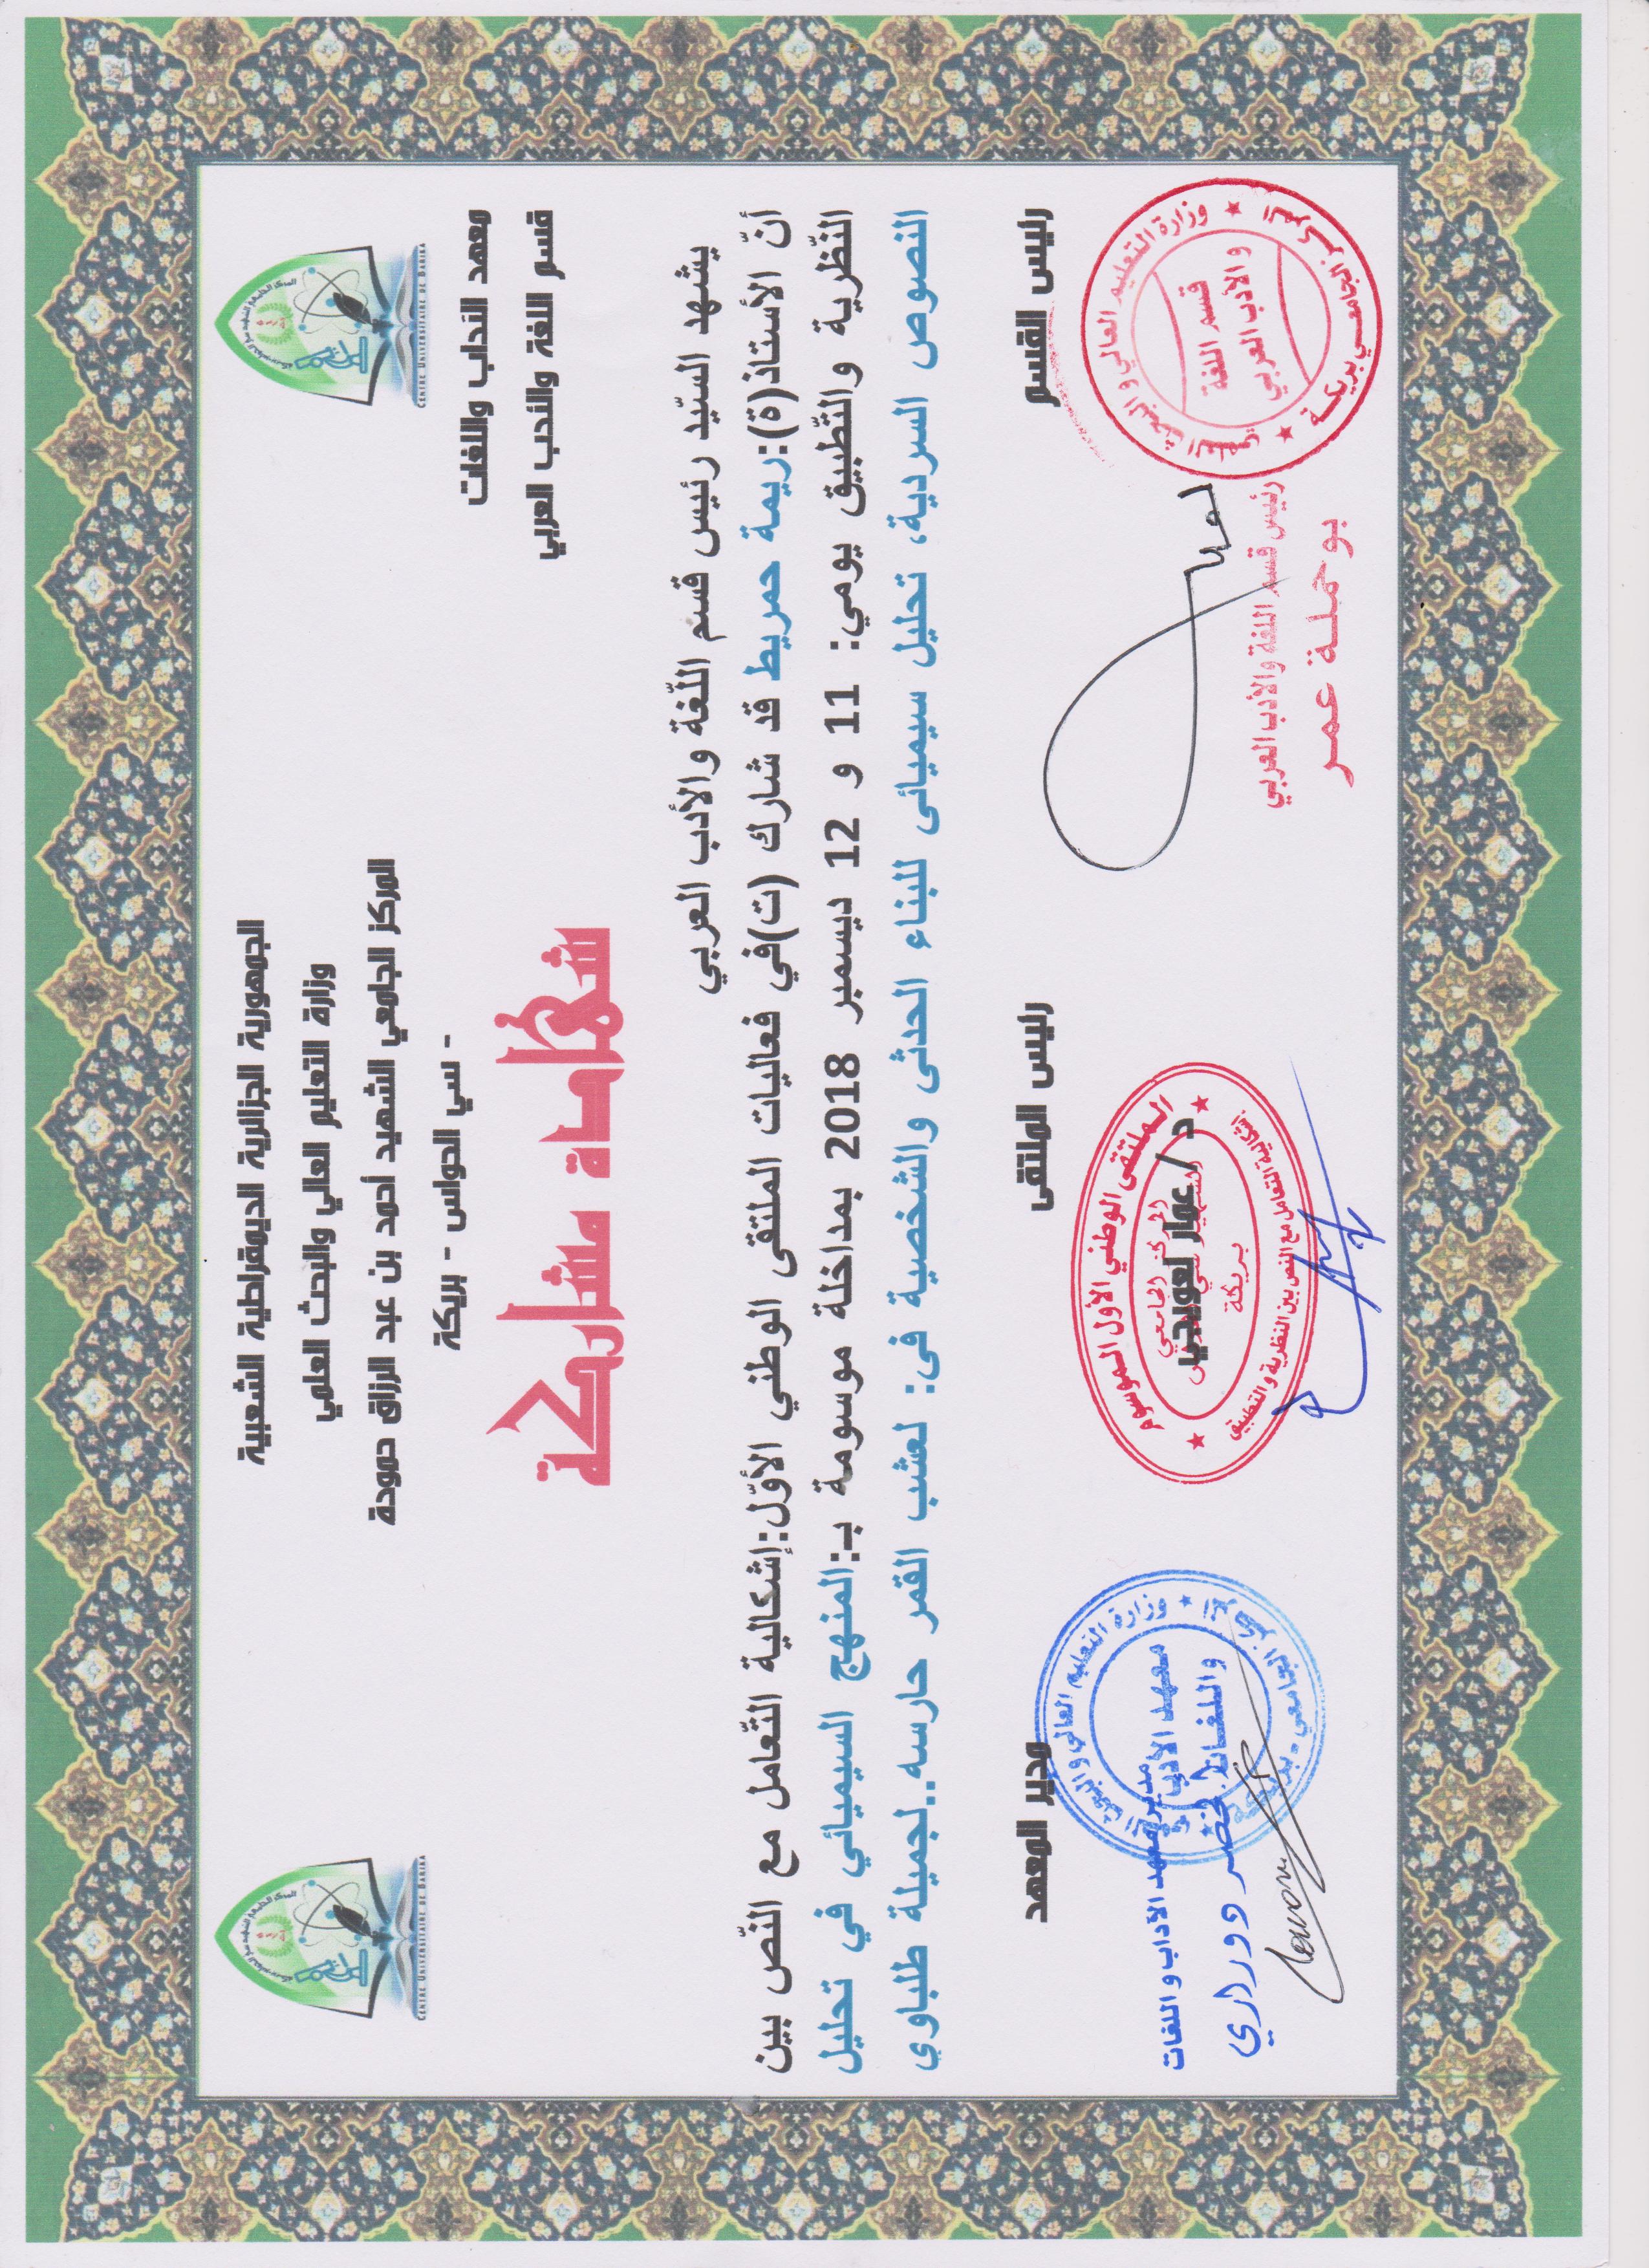 الجمهورية الجزائرية الديمقراطية الشعبية
وزارة التعليم العالي والبحث العلمي
المركز الجامعي الشهيد أحمد بن عبد الرزاق حمودة
- سي الحواس - بريكة
CENTRE UNIVERSITAIRE DE BARIKA
CENTRE UNIVERSITAIRE DE BARIKA
معهد الآداب واللغات
قسم اللغة والأدب العربي
شهادة مشاركة
يشهد السّيد رئيس قسم اللّغة والأدب العربي
أنّ الأستاذ(ة):ريمة حمريط قد شارك (ت)في فعاليات الملتقى الوطني الأوّل:إشكالية التّعامل مع النّص بين
النّظرية والتّطبيق يومي: 11 و 12 ديسمبر 2018 بمداخلة موسومة ب:المنهج السيميائي في تحليل
النصوص السردية، تحليل سيميائى للبناء الحدثى والشخصية فى: لعشب القمر حارسه..لجميلة طلباوي
رئيس القسم
رئيس الملتقى
مدير المعهد
وزارة التعليم العالي و البحث العلمي
المركز الجامعي بريكة
قسم اللغة
و الأدب العربي
رئيس قسم اللغة والأدب العربي
بوحملة عمر
الملتقى الوطني الأول الموسوم
إشكالية التعامل مع النص بين النظرية و التطبيق
المركز الجامعي
بريكة
د/ عمار لعويجي
وزارة التعليم العالي و البحث
المركز الجامعي - بريكة
معهد الآداب
واللغات
مدير معهد الآداب و اللغات